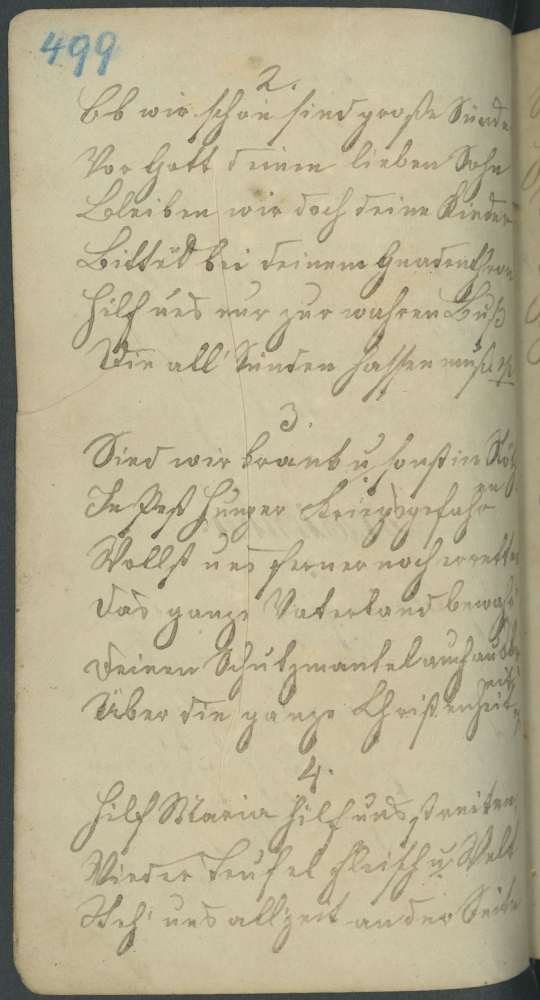 499
2.
Ob wir schon sind große Sünde
Vor Gott deinem lieben Sohn
Bleiben wir doch deine Kinder
Bitt für bei deinem Gnadenthron
Hilf uns nur zur wahren Buß
Die all' Sünden hassen muß
3.
Sind wir krank u sonst in
In Pest Hunger Kriegsgefahr
Wollst uns ferner noch erretten
Das ganze Vaterland bewahr
Deinen Schutzmantel auch
Über die ganze Christenheit
4.
Hilf Maria hilf uns streiten
Wieder Teufel Fleisch u Welt
Steh' uns allzeit an der Seite